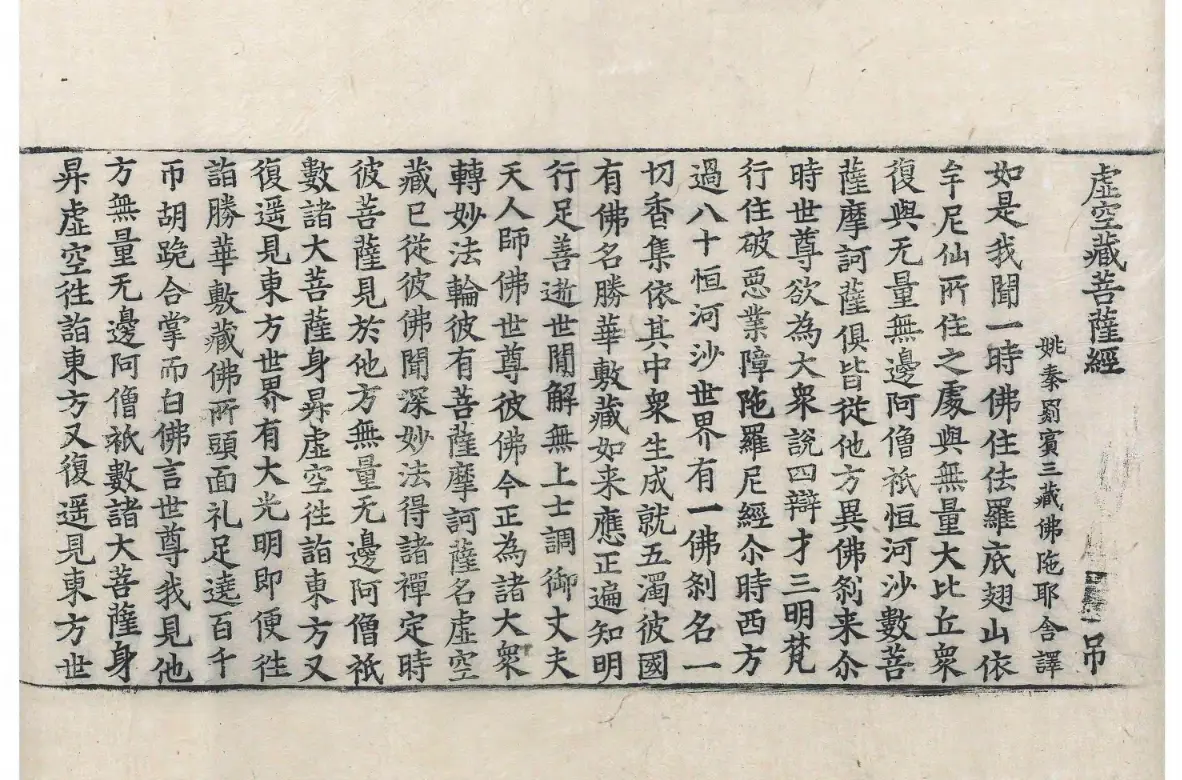 虛空藏菩薩經 吊
姚秦罽賓三藏佛陁耶舍譯
如是我聞一時佛住佉羅底翅山依
牟尼仙所住之處與無量大比丘衆
復與无量無邊阿僧祇恒河沙數菩
薩摩訶薩俱皆從他方異佛剎来尒
時世尊欲為大衆說四辯才三明梵
行住破惡業障陁羅尼經尒時西方
過八十恒河沙世界有一佛剎名一
切香集依其中衆生成就五濁彼國
有佛名勝華敷藏如来應正遍知明
行足善逝世閒解無上士調御丈夫
天人師佛世尊彼佛今正為諸大衆
轉妙法輪彼有菩薩摩訶薩名虛空
藏已從彼佛聞深妙法得諸禪定時
彼菩薩見於他方無量无邊阿僧祇
數諸大菩薩身昇虛空徃詣東方又
復遥見東方世界有大光明即便徃
詣勝華敷藏佛所頭面礼足遶百千
帀胡跪合掌而白佛言世尊我見他
方無量无邊阿僧祇數諸大菩薩身
昇虛空徃詣東方又復遥見東方世